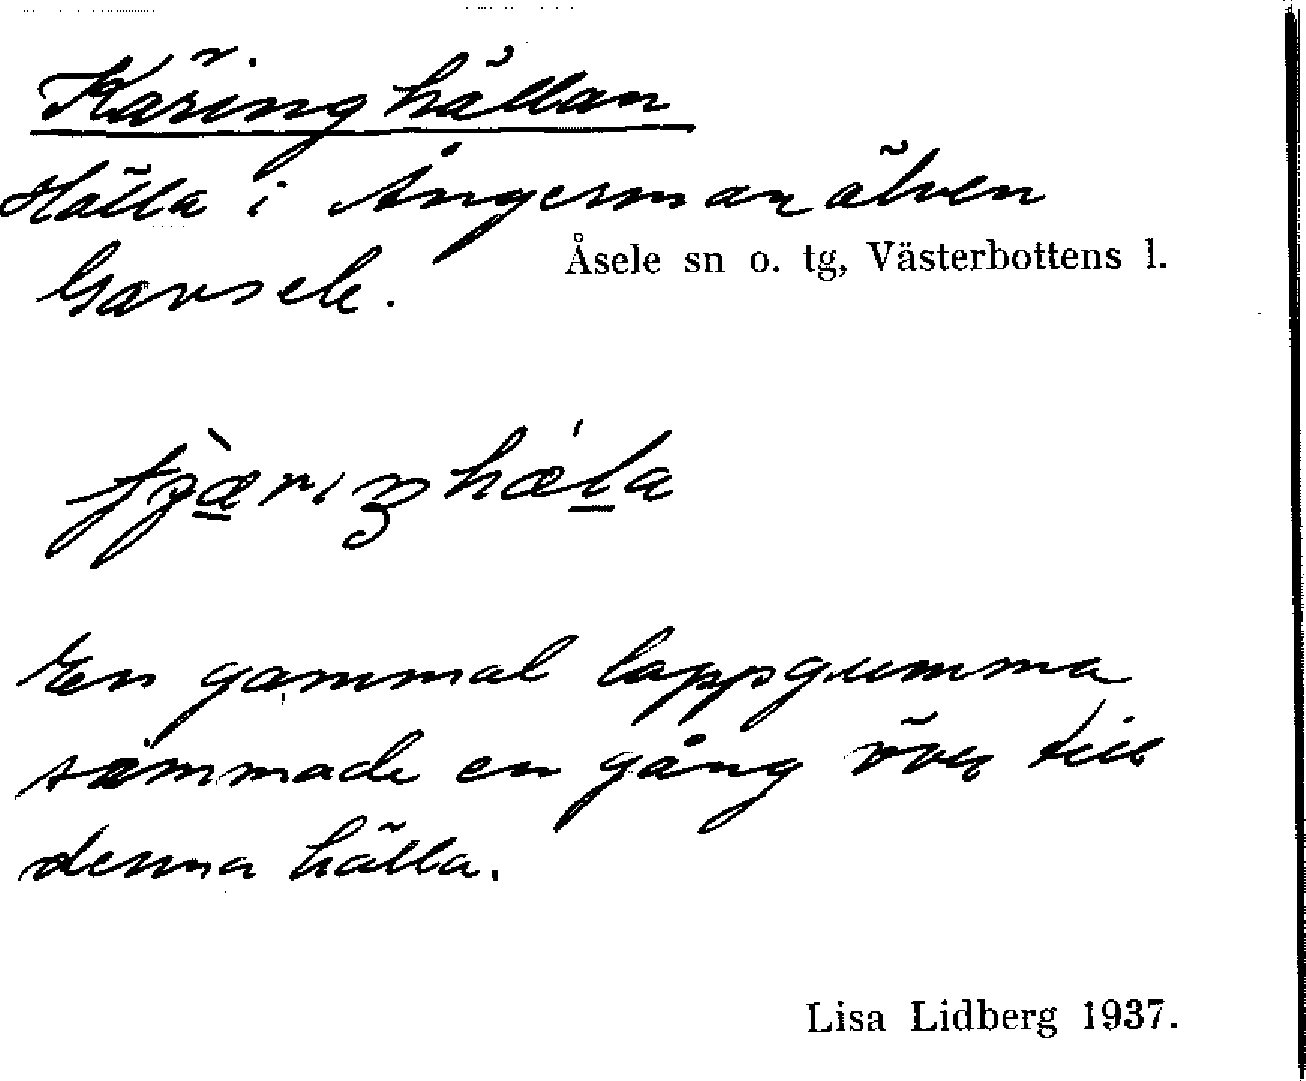 Käringhällan
Hälla i Ångermanälven
Gavsele. Åsele sn o. tg, Västerbottens l.
En gammal lappgumma
simmade en gång över till
denna hälla.
Lisa Lidberg 1937.